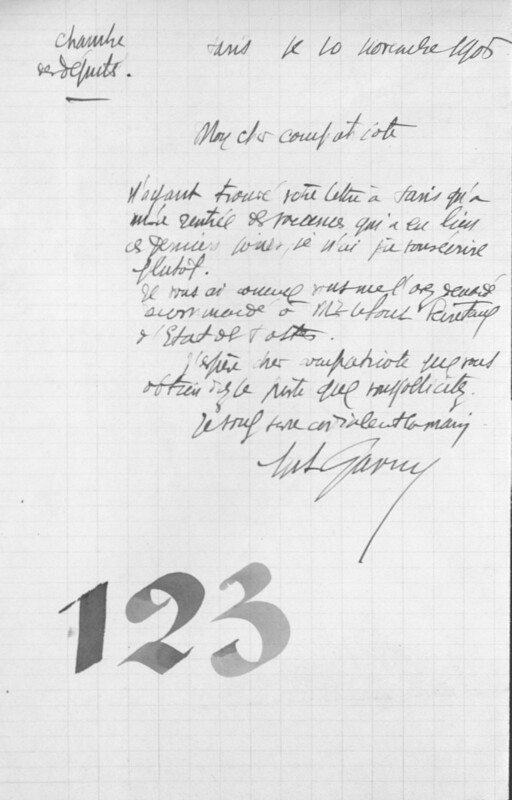 Chambre
des députés.
Paris le 10 novembre 1905
Mon cher compatriote
N'ayant trouvé votre lettre à Paris qu'à
ma rentrée de vacances qui a eu lieu
ces derniers jours, je n'ai pu vous écrire
plutôt.
Je vous ai comme vous me l'avez demandé
recommandé à Mr
d'Etat des Postes.
J'espère cher compatriote que vous
obtiendrez le poste que vous sollicitez.
Je vous serre cordialement la main
123